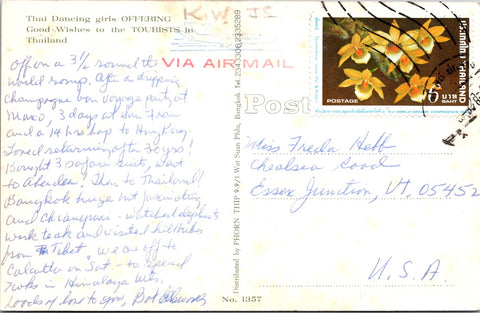 Thai Dancing girls OFFERING
Good-Wishes to the TOURISTS in
Thailand
K.W. JS
VIA AIR MAIL
off on a 3½ round the
world romp. After a dripping
champagne bon voyage party at
3 days at San Fran
and a 14 hrs hop to Hong Kong.
Loved returning after 30 yrs!
Bought 3 safari suits, went
to Aberdeen! Then to Thailand!
Bangkok huge but fascinating
and Chiangmai - watched elephants
work teak and visited hilltribes
from Tibet. We are off to
Calcutta on Sat - to spend
2 wks in Himalaya Mts.
Loads of love to you, Bot
Distributed by PHORN THIP 99/1 Wat Suan Phlu, Bangkok Tel. 2343306,2335289
No. 1357
Post
ประเทศไทย THAILAND
5 บาท
BAHT
POSTAGE
Miss Freda Hebb
Chelsea Road
Essex Junction, VT. 05452
U.S.A.